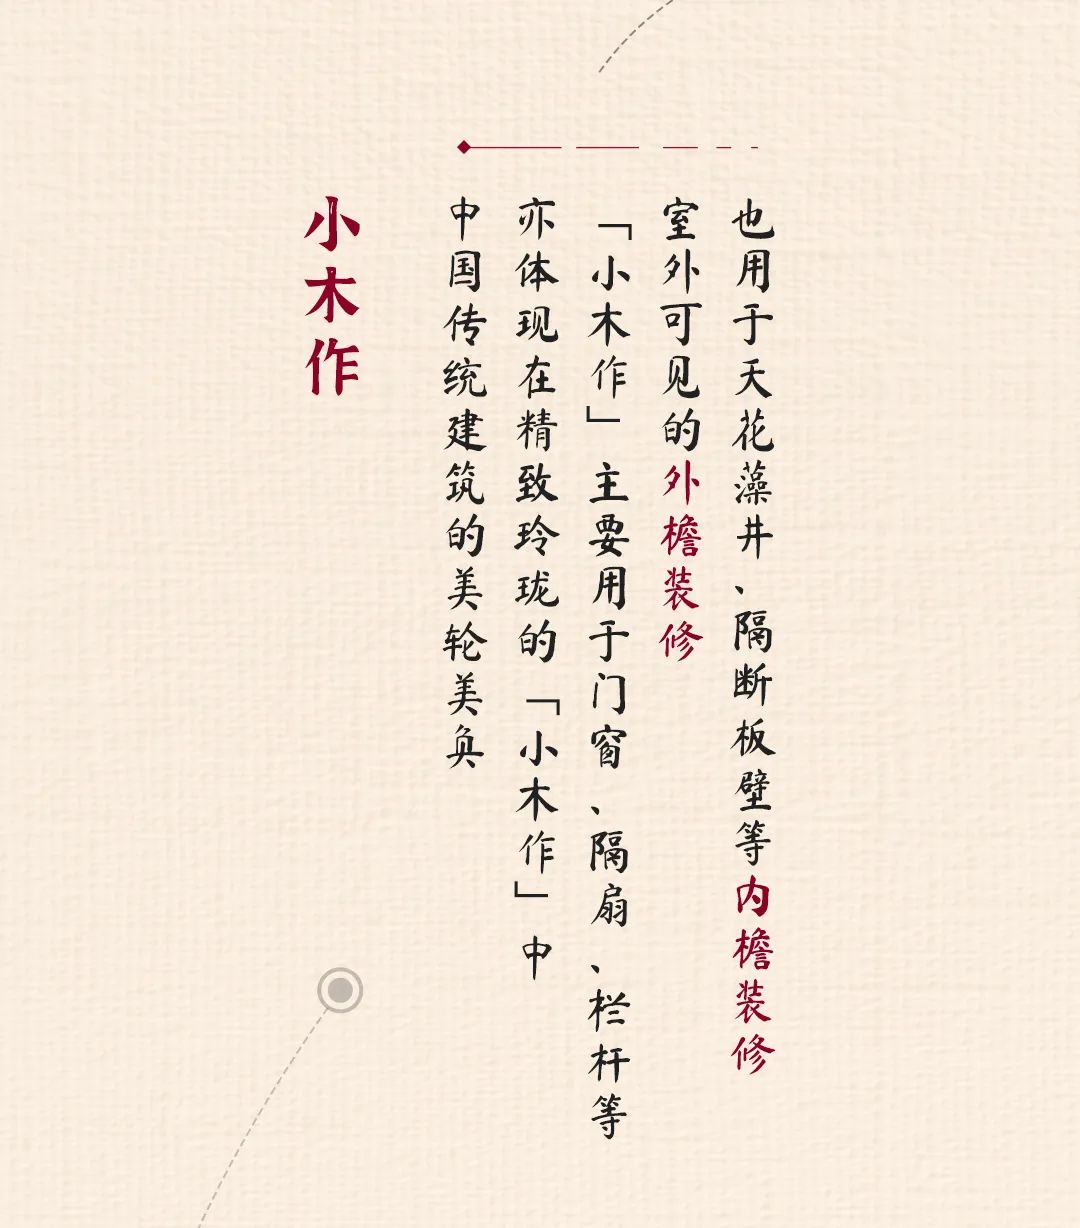 小木作
中国传统建筑的美轮美奂
亦体现在精致玲珑的「小木作」中
「小木作」主要用于门窗、隔扇、栏杆等
室外可见的外檐装修
也用于天花藻井、隔断板壁等内檐装修